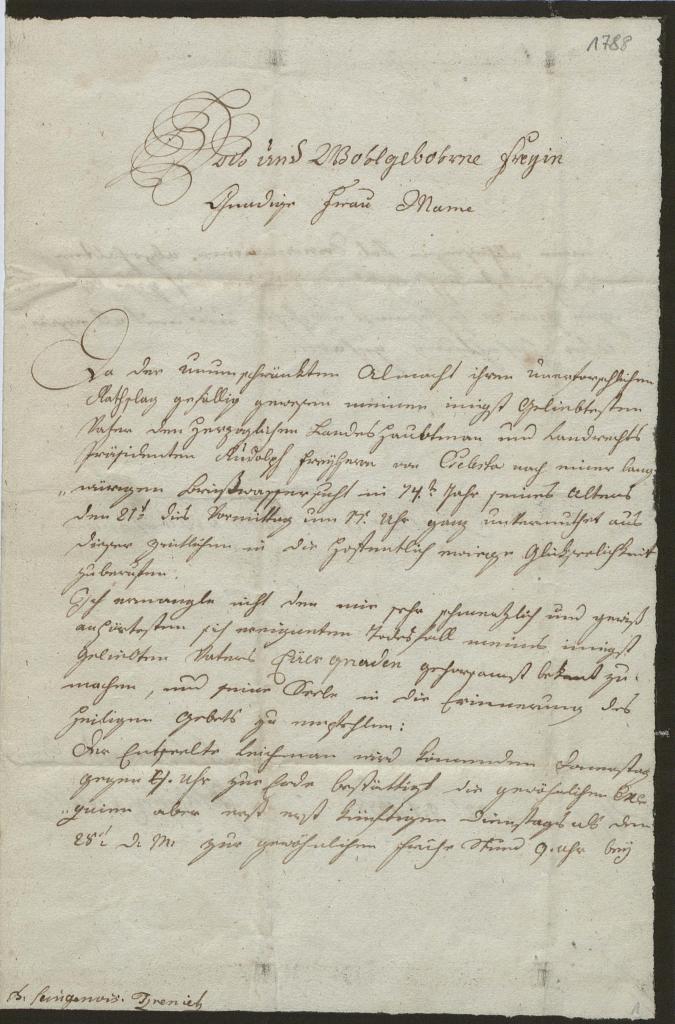 1788
Hoch und Wohlgebohrne Freyin
Gnädige Frau Mame
Da der unumschränkten Almacht ihren Unerforschlichen
Rathschlag gefällig gewesen meinen innigst Geliebtesten
Vater den Herzoglichen LandesHaubtman und Landrechts
Präsidenten Rudolph Freyherrn von nach einer lang
würigen Brustwassersucht in 74.t Jahr seines Alters
den 21t dis Vormittag um 11. Uhr ganz unvermuthet aus
dieser zeitlichen in die hoffentlich ewige Glükseelichkeit
zuberufen.
Ich ermangle nicht den mir sehr schmerzlich und gewiß
sich ereigneten Todesfall meines innigst
Geliebten Vaters Euer gnaden gehorsamst bekant zu
machen, und seine Seele in die Erinnerung des
Heiligen Gebets zu empfehlen:
Der Entseelte Leichnam wird kommenden Donnerstag
gegen Uhr zur Erde bestättigt die gewöhnlichen Exe
quien aber erst erst künftigen Dienstag als den
28t d. M. zur gewöhnlichen frühe Stund 9. Uhr bey